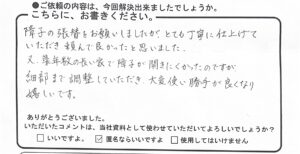 ●ご依頼の内容は、今回解決出来ましたでしょうか。
こちらに、お書きください。
障子の張替をお願いしましたが、とても丁寧に仕上げて
いただき頼んで良かったと思いました。
又、築年数の長い家で障子が開きにくかったのですが
細部まで調整していただき、大変使い勝手が良くなり
嬉しいです。
ありがとうございました。
いただいたコメントは、当社資料として使わせていただいてよろしいでしょうか?
□いいですよ。 ☑匿名ならいいですよ □使用してはいけません